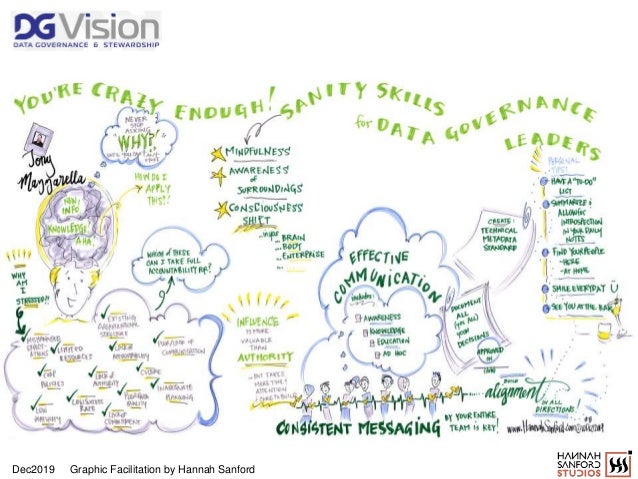 DG Vision
DATA GOVERNANCE & STEWARDSHIP
YOU'RE CRAZY ENOUGH! SANITY SKILLS
for DATA GOVERNANCE
LEADERS
NEVER
STOP
ASKING
"WHY?"
Tony
Mazzarella
HOW DO I
APPLY
THIS?!
NEW
INFO
KNOWLEDGE
AHA!
WHY
AM
I
STRESSED?!
WHICH of THESE
CAN I TAKE FULL
ACCOUNTABILITY FOR?
MINDFULNESS
AWARENESS
of
SURROUNDINGS
CONSCIOUSNESS
SHIFT
BRAIN
BODY
ENTERPRISE
EXISTING
ORGANIZATIONAL
STRUCTURE
LIMITED
RESOURCES
LACK of
COMMUNICATION
CULTURE
POLICIES
LACK of
AUTHORITY
INADEQUATE
PLANNING
LOW
MATURITY
LACK of
COMMITMENT
INFLUENCE
IS MORE
VALUABLE
THAN
AUTHORITY
... BUT TAKES
MORE TIME &
ATTENTION
EFFECTIVE
COMMUNICATION
includes:
AWARENESS
KNOWLEDGE
EDUCATION
AD HOC
CREATE:
TECHNICAL
METADATA
STANDARD
DOCUMENT
ALL
DECISIONS
APPROVED
PERSONAL
TIPS!
HAVE A "TO-DO"
LIST
SUMMARIZE &
ALLOW for
INTROSPECTION
IN YOUR DAILY
NOTES
FIND YOUR PEOPLE
- HERE
- AT HOME
SMILE EVERYDAY
SEE YOU AT THE BAR
BUILD
alignment
IN ALL
DIRECTIONS!
CONSISTENT MESSAGING
BY YOUR ENTIRE
TEAM is KEY!
Dec2019 Graphic Facilitation by Hannah Sanford
HANNAH
SANFORD
STUDIOS